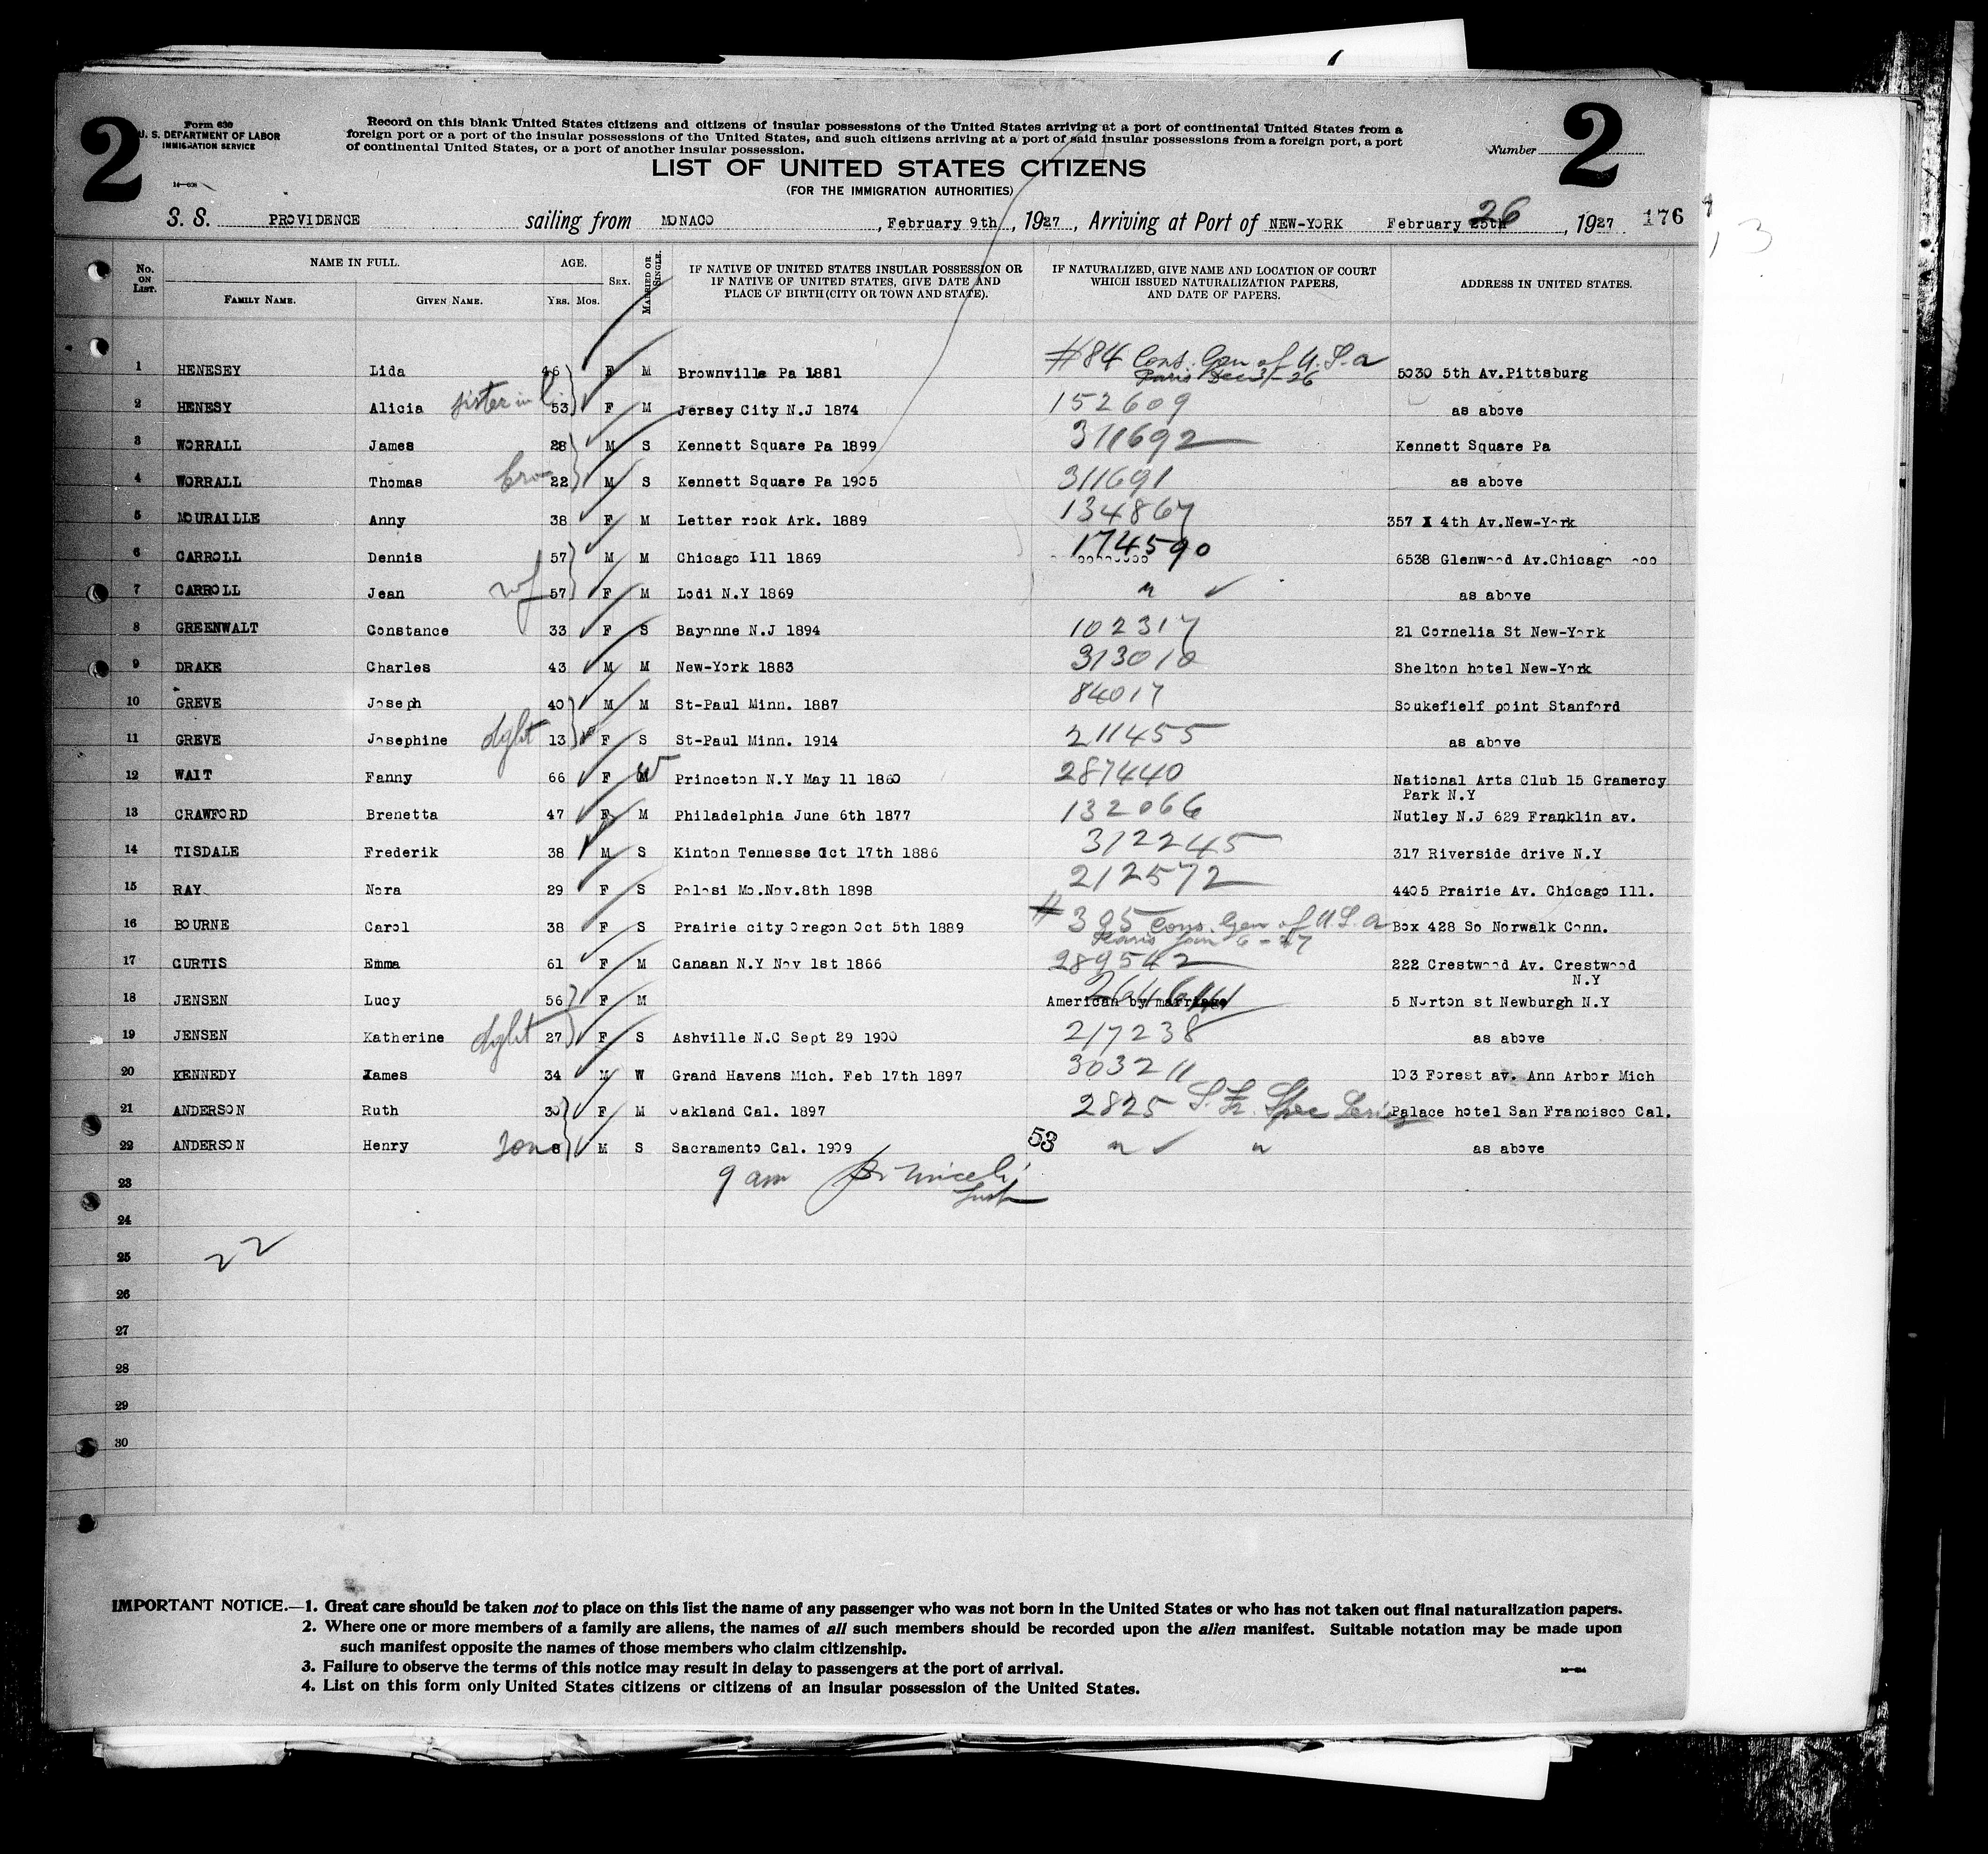 2
Form 630
U. S. DEPARTMENT OF LABOR
IMMIGRATION SERVICE
Record on this blank United States citizens and citizens of insular possessions of the United States arriving at a port of continental United States from a
foreign port or a port of the insular possessions of the United States, and such citizens arriving at a port of said insular possessions from a foreign port, a port
of continental United States, or a port of another insular possession.
LIST OF UNITED STATES CITIZENS
(FOR THE IMMIGRATION AUTHORITIES)
Number
2
S. S. PROVIDENCE sailing from MONACO, February 9th, 1927, Arriving at Port of NEW-YORK February 25th 26, 1927 176
No. ON LIST. NAME IN FULL. AGE. SEX. MARRIED OR SINGLE. IF NATIVE OF UNITED STATES INSULAR POSSESSION OR IF NATIVE OF UNITED STATES, GIVE DATE AND PLACE OF BIRTH (CITY OR TOWN AND STATE). IF NATURALIZED, GIVE NAME AND LOCATION OF COURT WHICH ISSUED NATURALIZATION PAPERS, AND DATE OF PAPERS. ADDRESS IN UNITED STATES.
FAMILY NAME. GIVEN NAME. YRS. MOS.
1 HENESEY Lida 46 F M Brownville Pa 1881 #84 Cons. Gen of U.S.A Paris Dec 31-26 5030 5th Av.Pittsburg
2 HENESY Alicia sister in l 53 F M Jersey City N.J 1874 152609 as above
3 WORRALL James 28 M S Kennett Square Pa 1899 311692 Kennett Square Pa
4 WORRALL Thomas bro 22 M S Kennett Square Pa 1905 311691 as above
5 MOURAILLE Anny 38 F M Letter rock Ark. 1889 134867 357 X 4th Av.New-York
6 CARROLL Dennis 57 M M Chicago Ill 1869 174590 6538 Glenwood Av.Chicago
7 CARROLL Jean wf 57 F M Lodi N.Y 1869 " as above
8 GREENWALT Constance 33 F S Bayonne N.J 1894 102317 21 Cornelia St New-York
9 DRAKE Charles 43 M M New-York 1883 313010 Shelton hotel New-York
10 GREVE Joseph 40 M M St-Paul Minn. 1887 84017 Soukefielf point Stanford
11 GREVE Josephine dght 13 F S St-Paul Minn. 1914 211455 as above
12 WAIT Fanny 66 F M W Princeton N.Y May 11 1860 287440 National Arts Club 15 Gramercy
Park N.Y
13 CRAWFORD Brenetta 47 F M Philadelphia June 6th 1877 132066 Nutley N.J 629 Franklin av.
14 TISDALE Frederik 38 M S Kinton Tennesse Oct 17th 1886 312245 317 Riverside drive N.Y
15 RAY Nora 29 F S Polosi Mo.Nov.8th 1898 212572 4405 Prairie Av. Chicago Ill.
16 BOURNE Carol 38 F S Prairie city Oregon Oct 5th 1889 #395 Cons. Gen of U.S.A Paris Jan 6-27 Box 428 So Norwalk Conn.
17 CURTIS Emma 61 F M Canaan N.Y Nov 1st 1866 289542 222 Crestwood Av. Crestwood
N.Y
18 JENSEN Lucy 56 F M American by marriage 5 Norton st Newburgh N.Y
19 JENSEN Katherine dght 27 F S Ashville N.C Sept 29 1900 217238 as above
20 KENNEDY James 34 M W Grand Havens Mich. Feb 17th 1897 303211 103 Forest av. Ann Arbor Mich
21 ANDERSON Ruth 30 F M Oakland Cal. 1897 2825 S. Fr. Spec Series Palace hotel San Francisco Cal.
22 ANDERSON Henry son 8 M S Sacramento Cal. 1909 53 " " as above
23 9 am
24
25 22
26
27
28
29
30
IMPORTANT NOTICE.—1. Great care should be taken not to place on this list the name of any passenger who was not born in the United States or who has not taken out final naturalization papers.
2. Where one or more members of a family are aliens, the names of all such members should be recorded upon the alien manifest. Suitable notation may be made upon
such manifest opposite the names of those members who claim citizenship.
3. Failure to observe the terms of this notice may result in delay to passengers at the port of arrival.
4. List on this form only United States citizens or citizens of an insular possession of the United States.